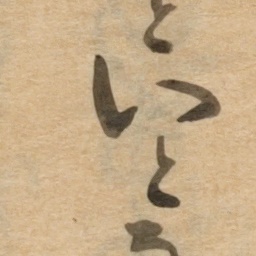 といと